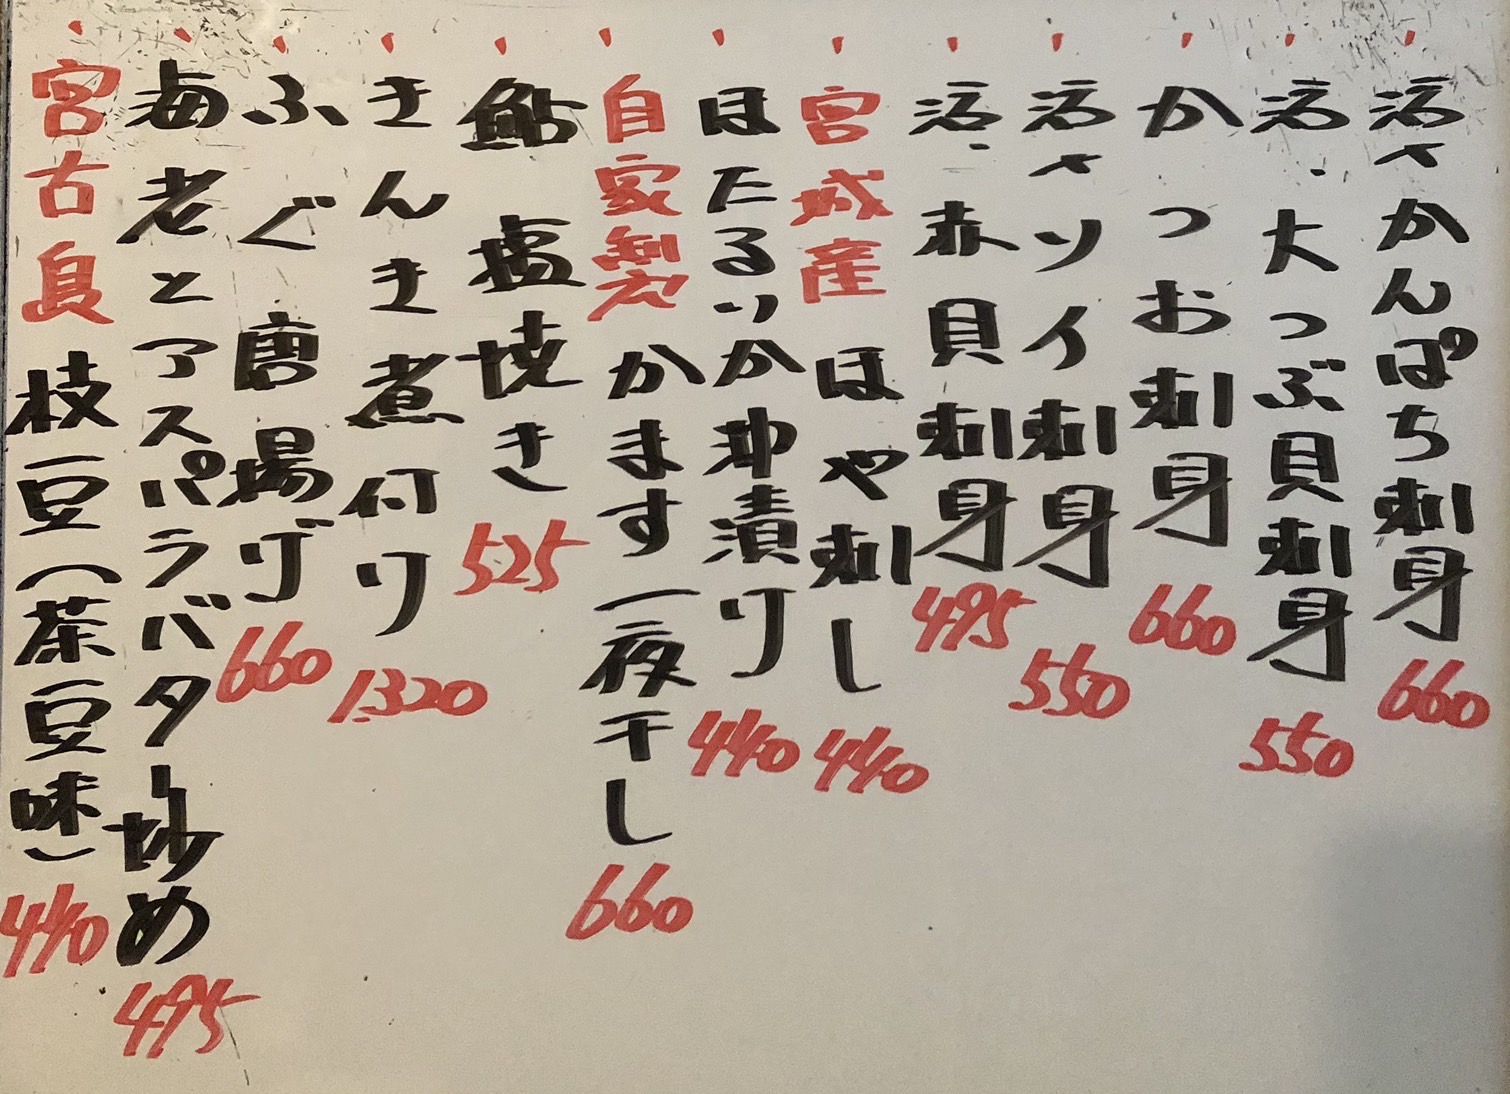 活〆かんぱち刺身 660
活、大つぶ貝刺身 550
かつお刺身 660
活〆ソイ刺身 550
活、赤貝刺身 495
宮城産 ほや刺し 440
ほたるいか沖漬け 440
自家製 かます一夜干し 660
鮎 塩焼き 525
きんき煮付け 1.320
ふぐ 唐揚げ 660
海老とアスパラバター炒め 495
宮古島 枝豆(茶豆味) 440